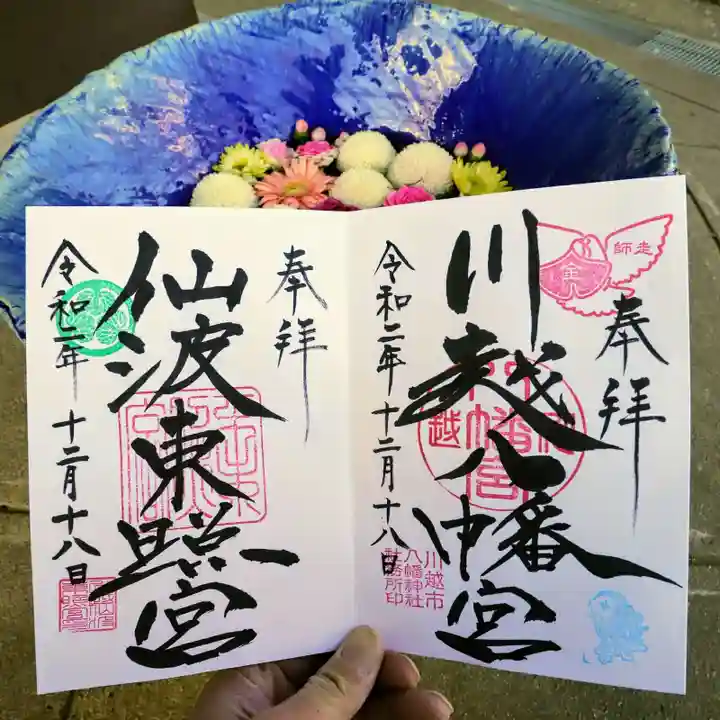 奉拝
川越八幡宮
令和二年十二月十八日
師走
川越市
八幡神社
社務所印
奉拝
仙波東照宮
令和二年十二月十八日